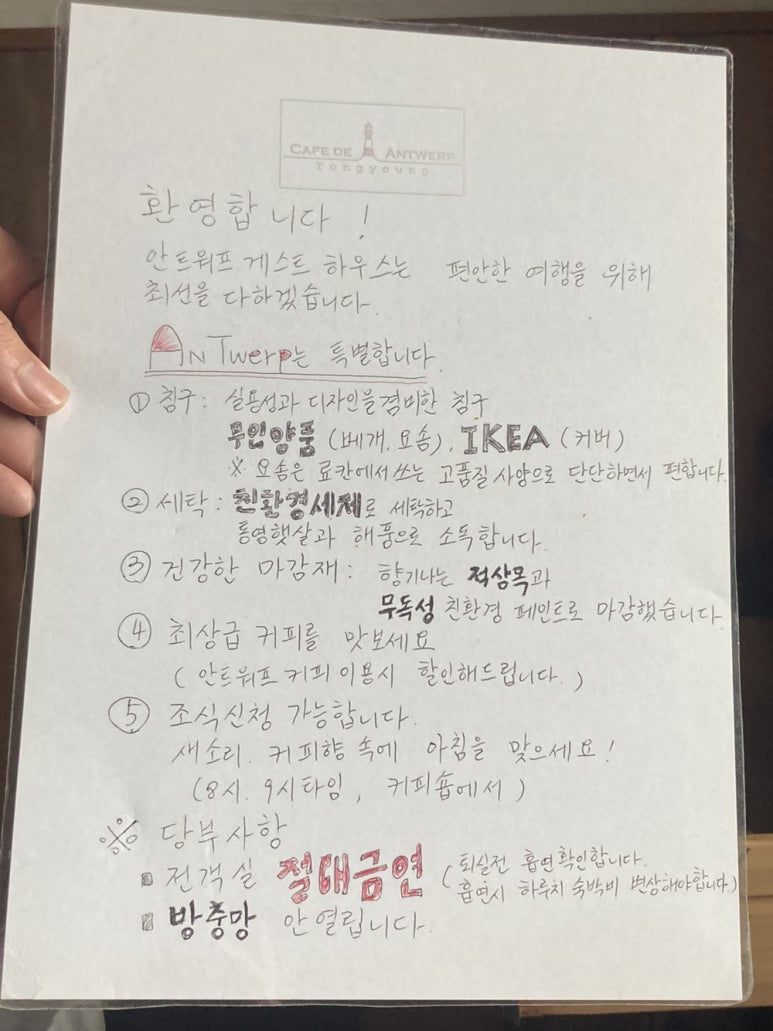 CAFE DE ANTWERP
Tongyoung
환영합니다 !
안트워프 게스트 하우스는 편안한 여행을 위해
최선을 다하겠습니다.
ANTwerp는 특별합니다.
① 침구 : 실용성과 디자인을 겸비한 침구
무인양품 (베개, 요솜), IKEA (커버)
※ 요솜은 료칸에서 쓰는 고품질 사양으로 단단하면서 편합니다.
② 세탁 : 친환경세제로 세탁하고
통영햇살과 해풍으로 소독합니다.
③ 건강한 마감재 : 향기나는 적삼목과
무독성 친환경 페인트로 마감했습니다.
④ 최상급 커피를 맛보세요
( 안트워프 커피 이용시 할인해드립니다. )
⑤ 조식신청 가능합니다.
새소리. 커피향 속에 아침을 맞으세요!
(8시. 9시타임, 커피숍에서 )
※ 당부사항
전객실 절대금연 ( 퇴실전 흡연확인합니다.
흡연시 하루치 숙박비 변상해야합니다.)
방충망 안 열립니다.